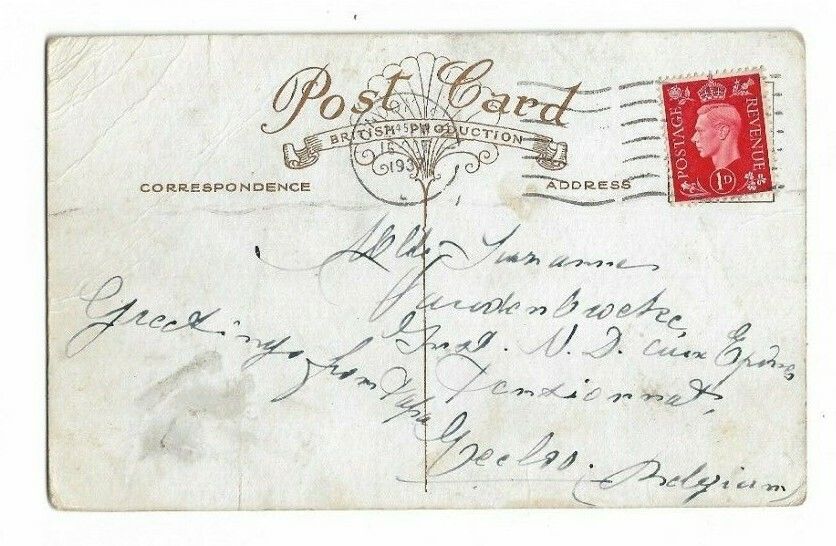 Post Card
BRITISH PRODUCTION
CORRESPONDENCE
ADDRESS
POSTAGE
REVENUE
1D
193
Greetings
from Papa
Mlle Suzanne
Vandenbroecke
Inst. N. D. aux Epines
Pensionnat,
Eecloo.
(Belgium)